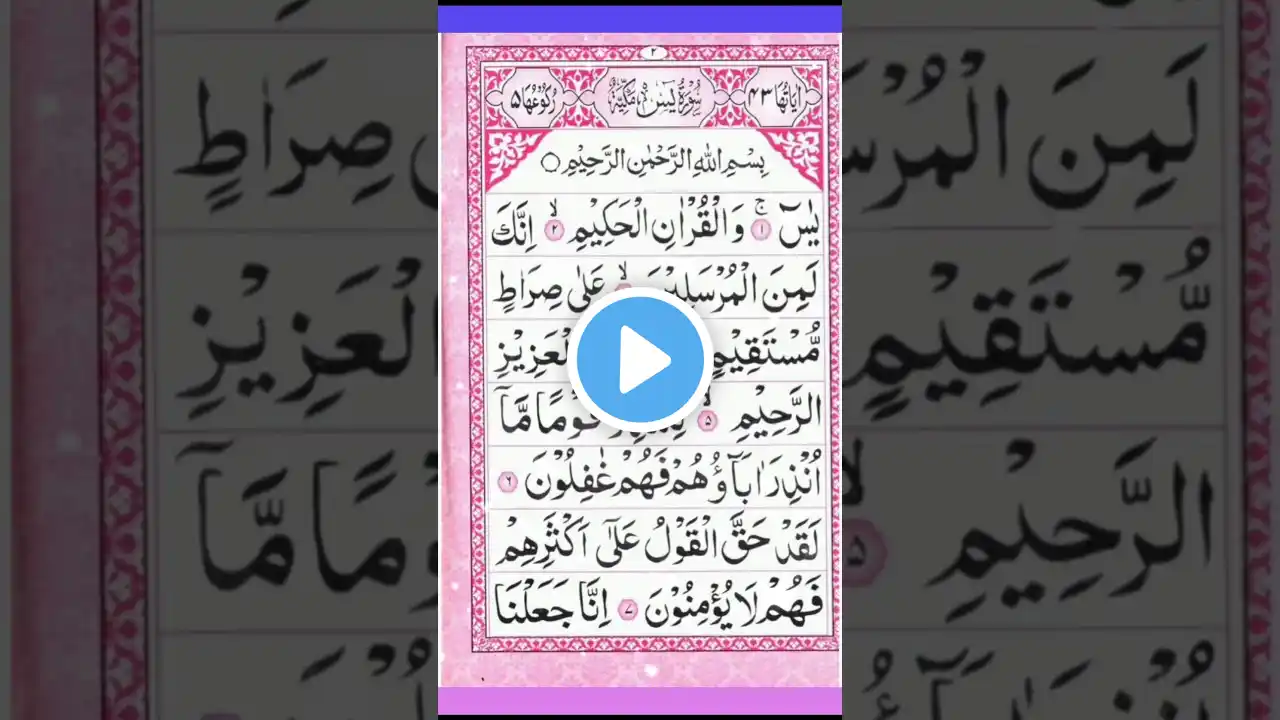 ۲
اٰيَاتُهَا ۴۳ سُوْرَةُ يٰسٓ مَكِّيَّةٌ رُكُوْعُهَا ۵
بِسْمِ اللّٰهِ الرَّحْمٰنِ الرَّحِيْمِ ○
يٰسٓ ۚ ۱ وَالْقُرْاٰنِ الْحَكِيْمِ ۙ ۲ اِنَّكَ
لَمِنَ الْمُرْسَلِيْنَ ۙ عَلٰى صِرَاطٍ
مُّسْتَقِيْمٍ الْعَزِيْزِ
الرَّحِيْمِ ۙ ۵ قَوْمًا مَّآ
اُنْذِرَ اٰبَآؤُهُمْ فَهُمْ غٰفِلُوْنَ ۶
لَقَدْ حَقَّ الْقَوْلُ عَلٰٓى اَكْثَرِهِمْ
فَهُمْ لَا يُؤْمِنُوْنَ ۷ اِنَّا جَعَلْنَا